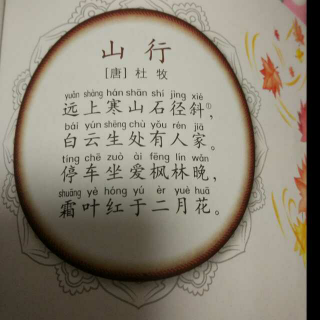 山行
[唐]杜牧
yuǎn shàng hán shān shí jìng xié
远上寒山石径斜①,
bái yún shēng chù yǒu rén jiā
白云生处有人家。
tíng chē zuò ài fēng lín wǎn
停车坐爱枫林晚,
shuāng yè hóng yú èr yuè huā
霜叶红于二月花。